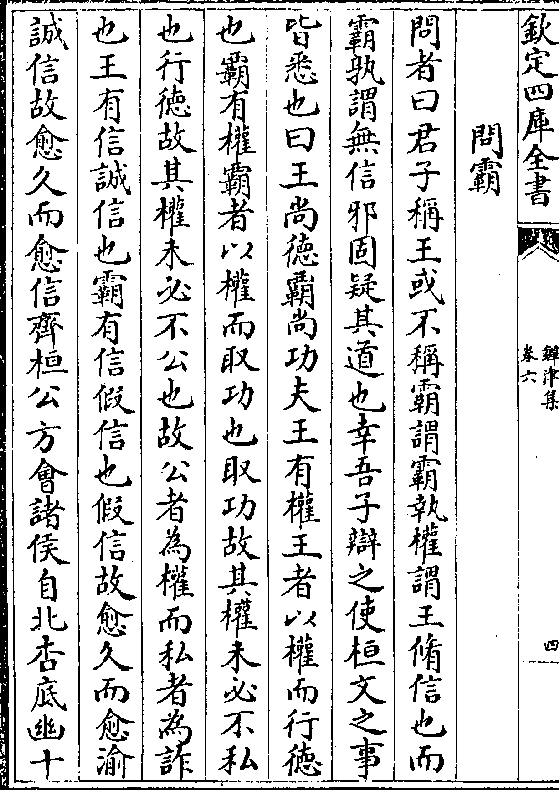 欽定四庫全書
鐔津集
卷六
四
問霸
問者曰君子稱王或不稱霸謂霸執權謂王脩信也而
霸孰謂無信邪固疑其道也幸吾子辯之使桓文之事
皆悉也曰王尚徳霸尚功夫王有權王者以權而行徳
也霸有權霸者以權而取功也取功故其權未必不私
也行徳故其權未必不公也故公者為權而私者為詐
也王有信誠信也霸有信假信也假信故愈久而愈渝
誠信故愈久而愈信齊桓公方會諸侯自北杏底幽十